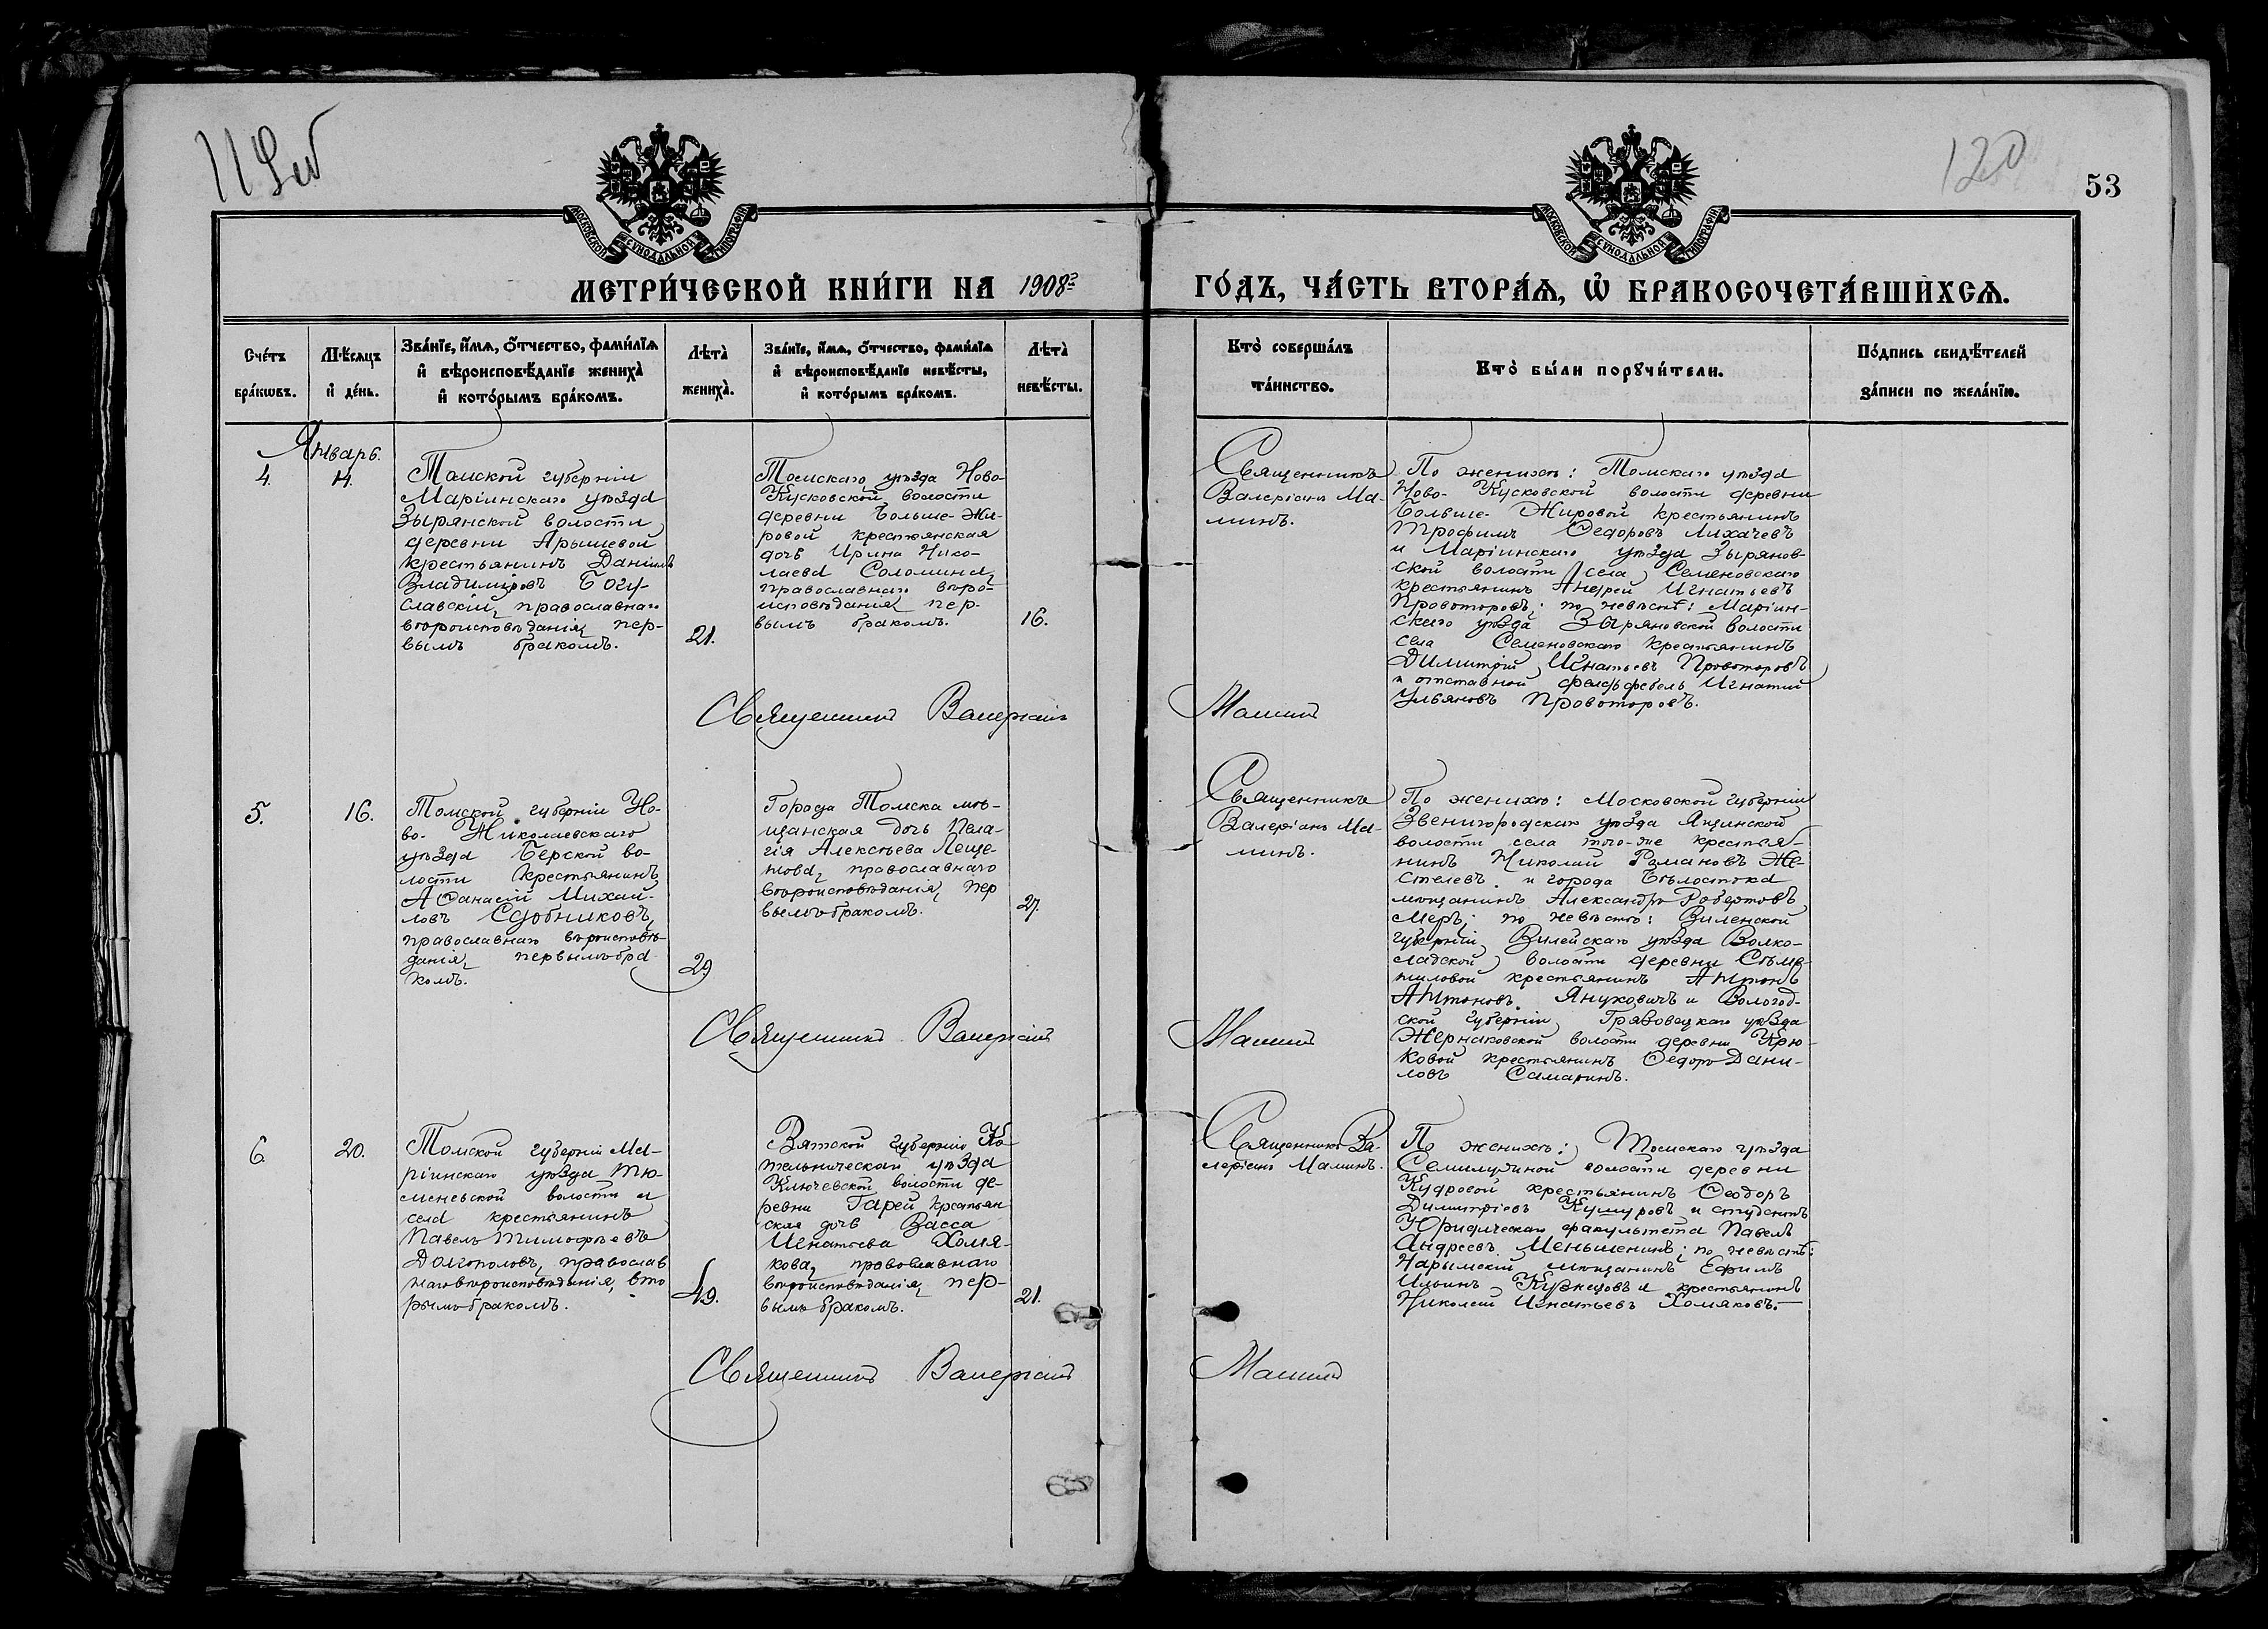 119об
120
53
МОСКОВСКОЙ СѴНОДАЛЬНОЙ ТИПОГРАФІИ
МОСКОВСКОЙ СѴНОДАЛЬНОЙ ТИПОГРАФІИ
МЕТРИ́ЧЕСКОЙ КНИ́ГИ НА 1908й
ГО́ДЪ, ЧА́СТЬ ВТОРА́Ѧ, Ѡ БРАКОСОЧЕТА́ВШИХСѦ.
Сче́тъ
бра́кѡвъ.
Мѣ́сѧцъ
и҆ де́нь.
Зва́нїе, и҆́мѧ, ѻ҆́тчество, фами́лїѧ
и҆ вѣроисповѣ́данїе жениха̀
и҆ кото́рымъ бра́комъ.
Лѣта̀
жениха̀.
Зва́нїе, и҆́мѧ, ѻ҆́тчество, фами́лїѧ
и҆ вѣроисповѣ́данїе невѣ́сты,
и҆ кото́рымъ бра́комъ.
Лѣта̀
невѣ́сты.
Кто̀ соверша́лъ
та́инство.
Кто̀ бы́ли порꙋчи́тели.
По́дпись свидѣ́телей
за́писи по жела́нїю.
Январь.
4.
14.
Томской губерніи
Маріинскаго уѣзда
Зырянской волости
деревни Арышевой
крестьянинъ Даніилъ
Владиміровъ Богу-
славскій, православнаго
вѣроисповѣданія, пер-
вымъ бракомъ.
21.
Томскаго уѣзда Ново-
Кусковской волости
деревни Больше-Жи-
ровой крестьянская
дочь Ирина Нико-
лаева Соломина,
православнаго вѣро-
исповѣданія, пер-
вымъ бракомъ.
16.
Священникъ
Валеріанъ Ма-
минъ.
По женихѣ: Томскаго уѣзда
Ново-Кусковской волости деревни
Больше-Жировой крестьянинъ
Трофимъ Ѳедоровъ Лихачевъ
и Маріинскаго уѣзда Зырянов-
ской волости села Семеновскаго
крестьянинъ Андрей Игнатьевъ
Провоторовъ; по невѣстѣ: Маріин-
скаго уѣзда Зыряновской волости
села Семеновскаго крестьянинъ
Димитрій Игнатьевъ Провоторовъ
и отставной фельдфебель Игнатій
Ульяновъ Провоторовъ.
Священникъ Валеріанъ Маминъ
5.
16.
Томской губерніи Но-
во-Николаевскаго
уѣзда Бердской во-
лости крестьянинъ
Аѳанасій Михай-
ловъ Сдобниковъ,
православнаго вѣроисповѣ-
данія, первымъ бра-
комъ.
29
Города Томска мѣ-
щанская дочь Пела-
гія Алексѣева Леще-
нова, православнаго
вѣроисповѣданія, пер
вымъ бракомъ.
27.
Священникъ
Валеріанъ Ма-
минъ.
По женихѣ: Московской губерніи
Звенигородскаго уѣзда Ягунской
волости села того-же крестья-
нинъ Николай Романовъ Же-
стелевъ и города Бѣлостока
мѣщанинъ Александръ Робертовъ
Меръ; по невѣстѣ: Виленской
губерніи Вилейскаго уѣзда Волко-
ладской волости деревни
крестьянинъ Антонъ
Антоновъ Януковичъ и Вологод-
ской губерніи Грязовецкаго уѣзда
Жернаковской волости деревни Крю-
ковой крестьянинъ Ѳедоръ Дани-
ловъ Самаринъ.
Священникъ Валеріанъ Маминъ
6.
20.
Томской губерніи Ма-
ріинскаго уѣзда Тю-
меневской волости и
села крестьянинъ
Павелъ Тимоѳеевъ
Долгополовъ, православ
наго вѣроисповѣданія, вто
рымъ бракомъ.
49.
Вятской губерніи Ко
тельническаго уѣзда
Ключевской волости де-
ревни Гарей крестьян
ская дочь Васса
Игнатьева Хомя-
кова, православнаго
вѣроисповѣданія, пер-
вымъ бракомъ.
21.
Священникъ Ва-
леріанъ Маминъ.
По женихѣ: Томскаго уѣзда
Семилужной волости деревни
Кудровой крестьянинъ Ѳеодоръ
Димитріевъ и студентъ
Юридическаго факультета Павелъ
Андреевъ Меньшенинъ; по невѣстѣ:
Нарымскій мѣщанинъ Ефимъ
Ильинъ Кузнецовъ и крестьянинъ
Николай Игнатьевъ Хомяковъ.
Священникъ Валеріанъ Маминъ